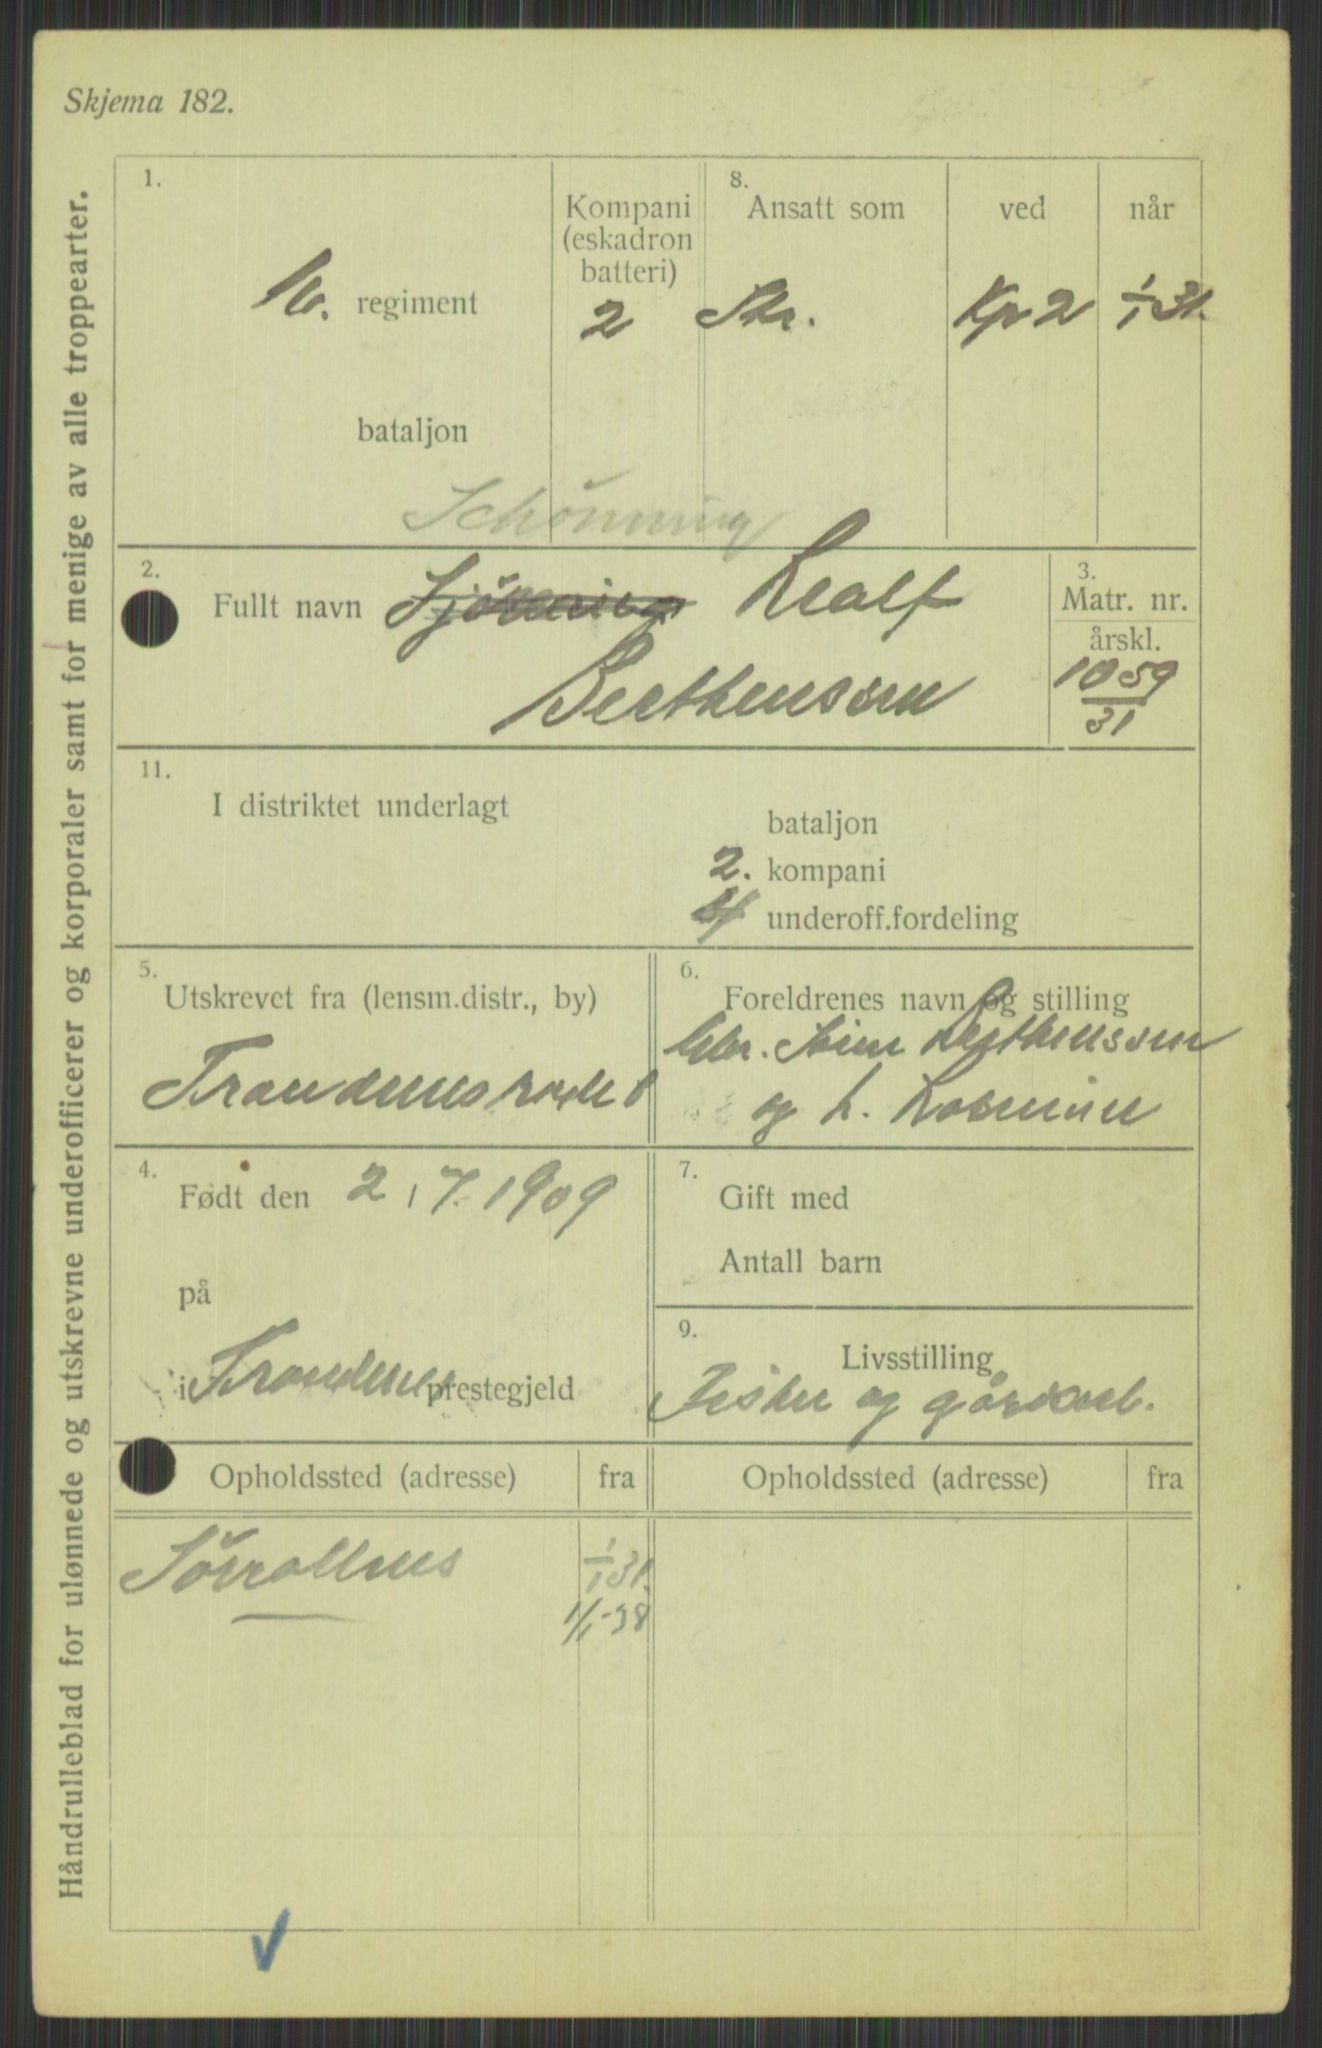 Skjema 182.
Håndrulleblad for ulønnede og utskrevne underofficerer og korporaler samt for menige av alle troppearter.
1.
16. regiment
bataljon
Kompani
(eskadron
batteri)
2
8.
Ansatt som
ved
når
Kp 2
1/1 31.
Schönning
2.
Fullt navn
Berthenssen
3.
Matr. nr.
årskl.
1059
31
11.
I distriktet underlagt
bataljon
2. kompani
4 underoff.fordeling
5.
Utskrevet fra (lensm.distr., by)
6.
Foreldrenes navn og stilling
Berthenssen
og
4.
Født den 2/7. 1909
på
i Trondenes prestegjeld
7.
Gift med
Antall barn
9.
Livsstilling
Fisker og gårdarb.
Opholdssted (adresse)
fra
Opholdssted (adresse)
fra
Sørrollnes
1/1 31.
1/1-38